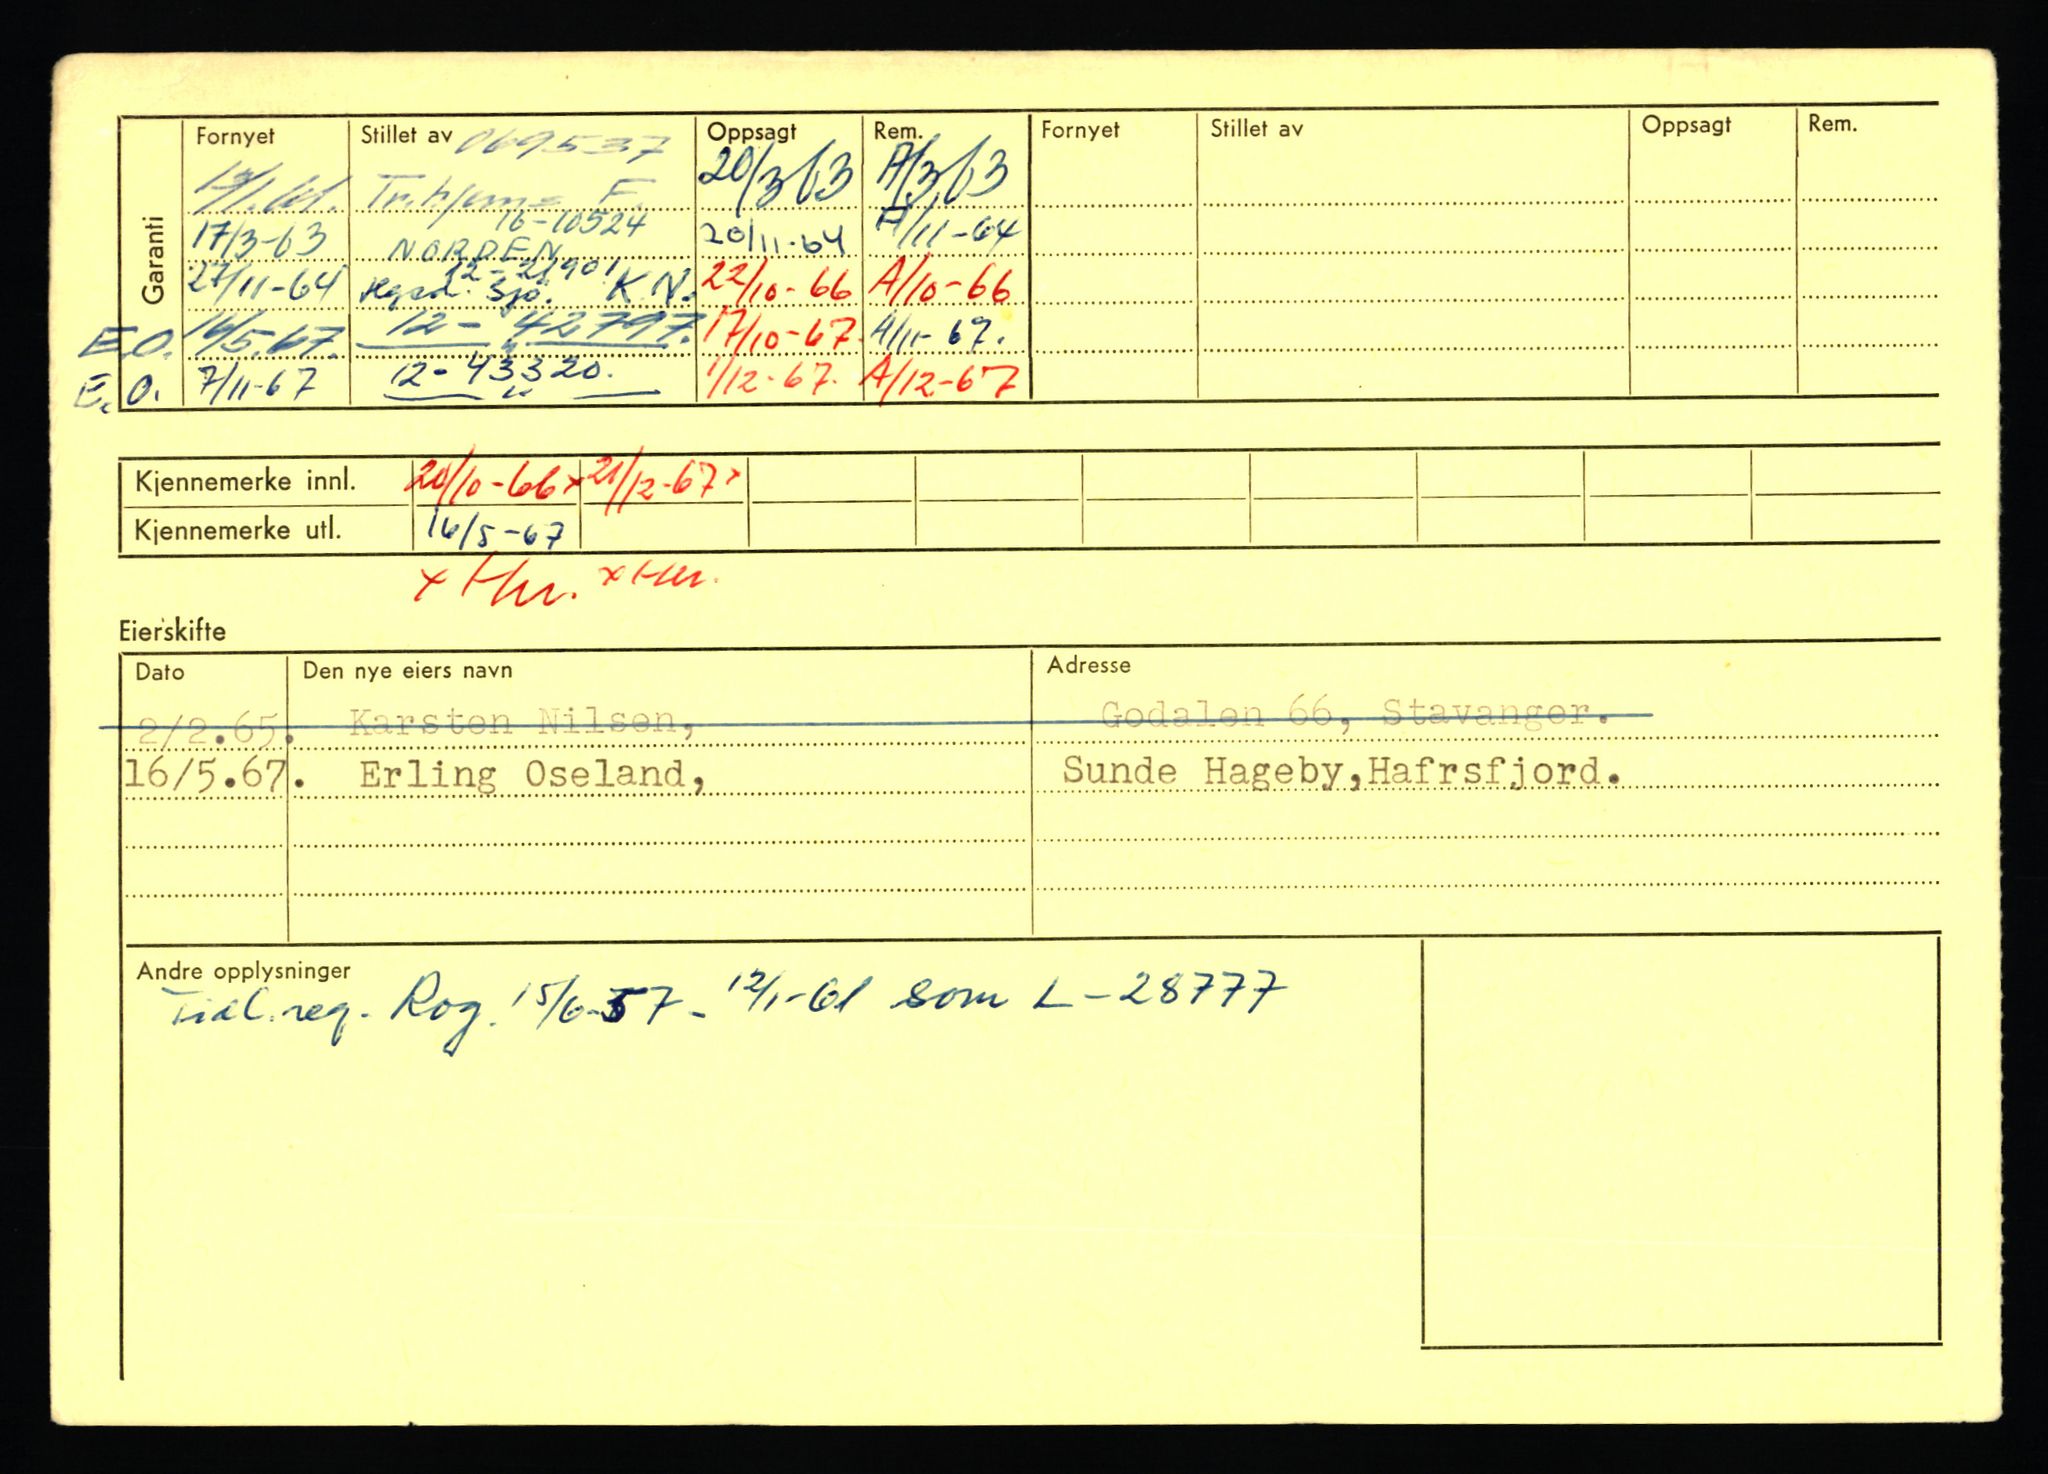 Garanti
Fornyet Stillet av 069537 Oppsagt Rem. Fornyet Stillet av Oppsagt Rem.
Tr.hjems F. 20/3 63 A/3 63
16-10524
17/3-63 NORDEN 20/11-64 A/11-64
12-21901
27/11-64 Sjø. K.N. 22/10-66 A/10-66
E.O. 16/5.67. 12-42797. 17/10-67. A/11-67.
E.O. 7/11-67 12-43320. 1/12-67. A/12-67
"
Kjennemerke innl. 20/10-66 x 21/12-67 x
Kjennemerke utl. 16/5-67
x Hr. x Hr.
Eierskifte
Dato Den nye eiers navn Adresse
2/2.65. Karsten Nilsen, Godalen 66, Stavanger.
16/5.67. Erling Oseland, Sunde Hageby,Hafrsfjord.
Andre opplysninger
Tidl.reg. Rog. 15/6-57- 12/1-61 som L-28777